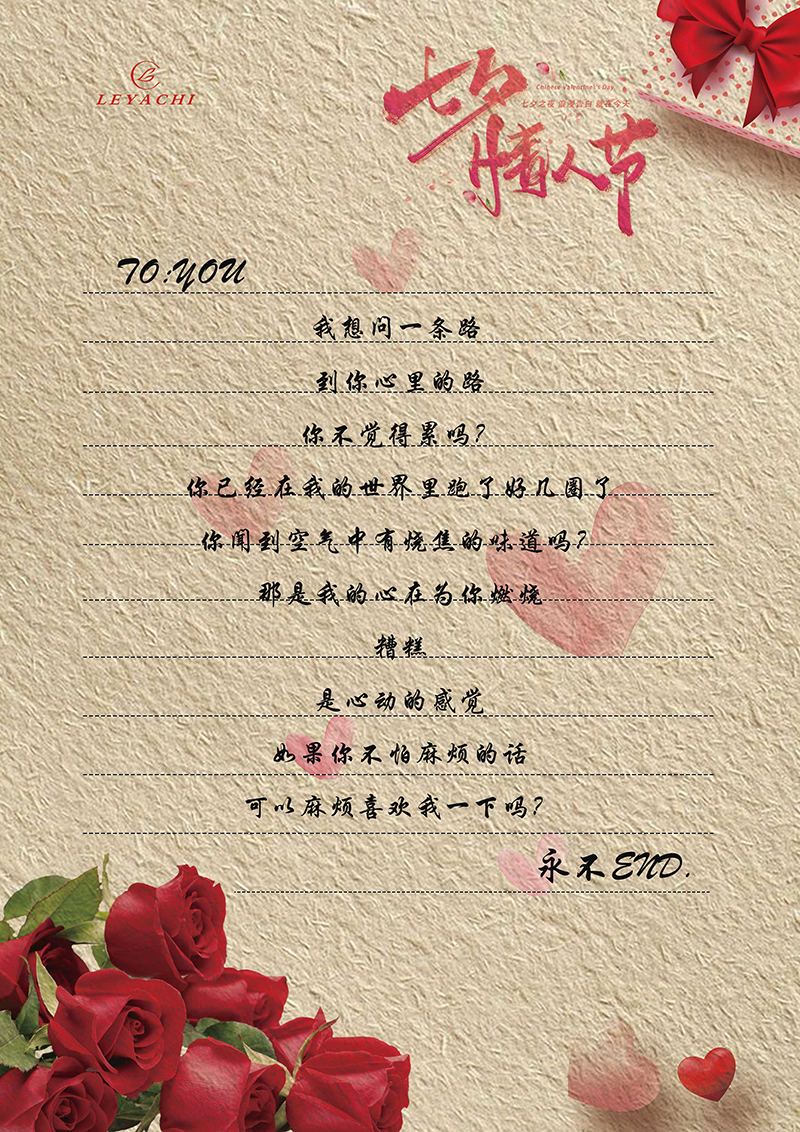 LEYACHI
七夕
Chinese Valentine's Day
七夕之夜 浪漫告白 就在今天
情人节
TO:YOU
我想问一条路
到你心里的路
你不觉得累吗?
你已经在我的世界里跑了好几圈了
你闻到空气中有烧焦的味道吗?
那是我的心在为你燃烧
糟糕
是心动的感觉
如果你不怕麻烦的话
可以麻烦喜欢我一下吗?
永不END.